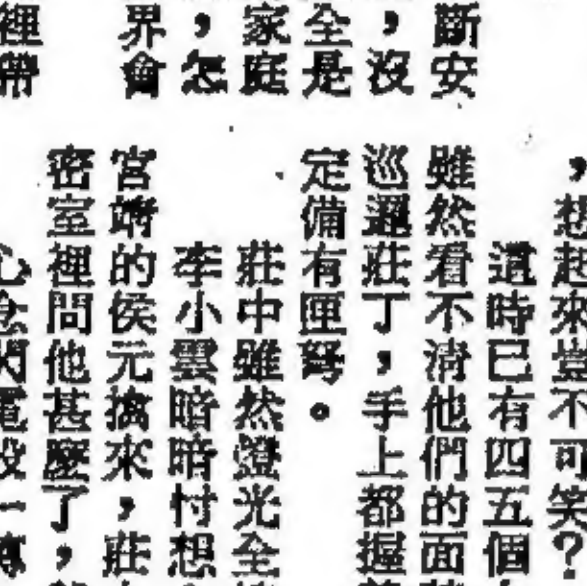 斷安
，沒
全是
家庭
，怎
界會
裡帶
，想起來豈不可笑？
這時已有四五個
雖然看不清他們的面
巡邏莊丁，手上都握
定備有匣弩。
莊中雖然燈光全
李小雲暗暗忖想
宮靖的侯元擒來，莊
密室裡問他甚麼了，
心念閃電般一轉